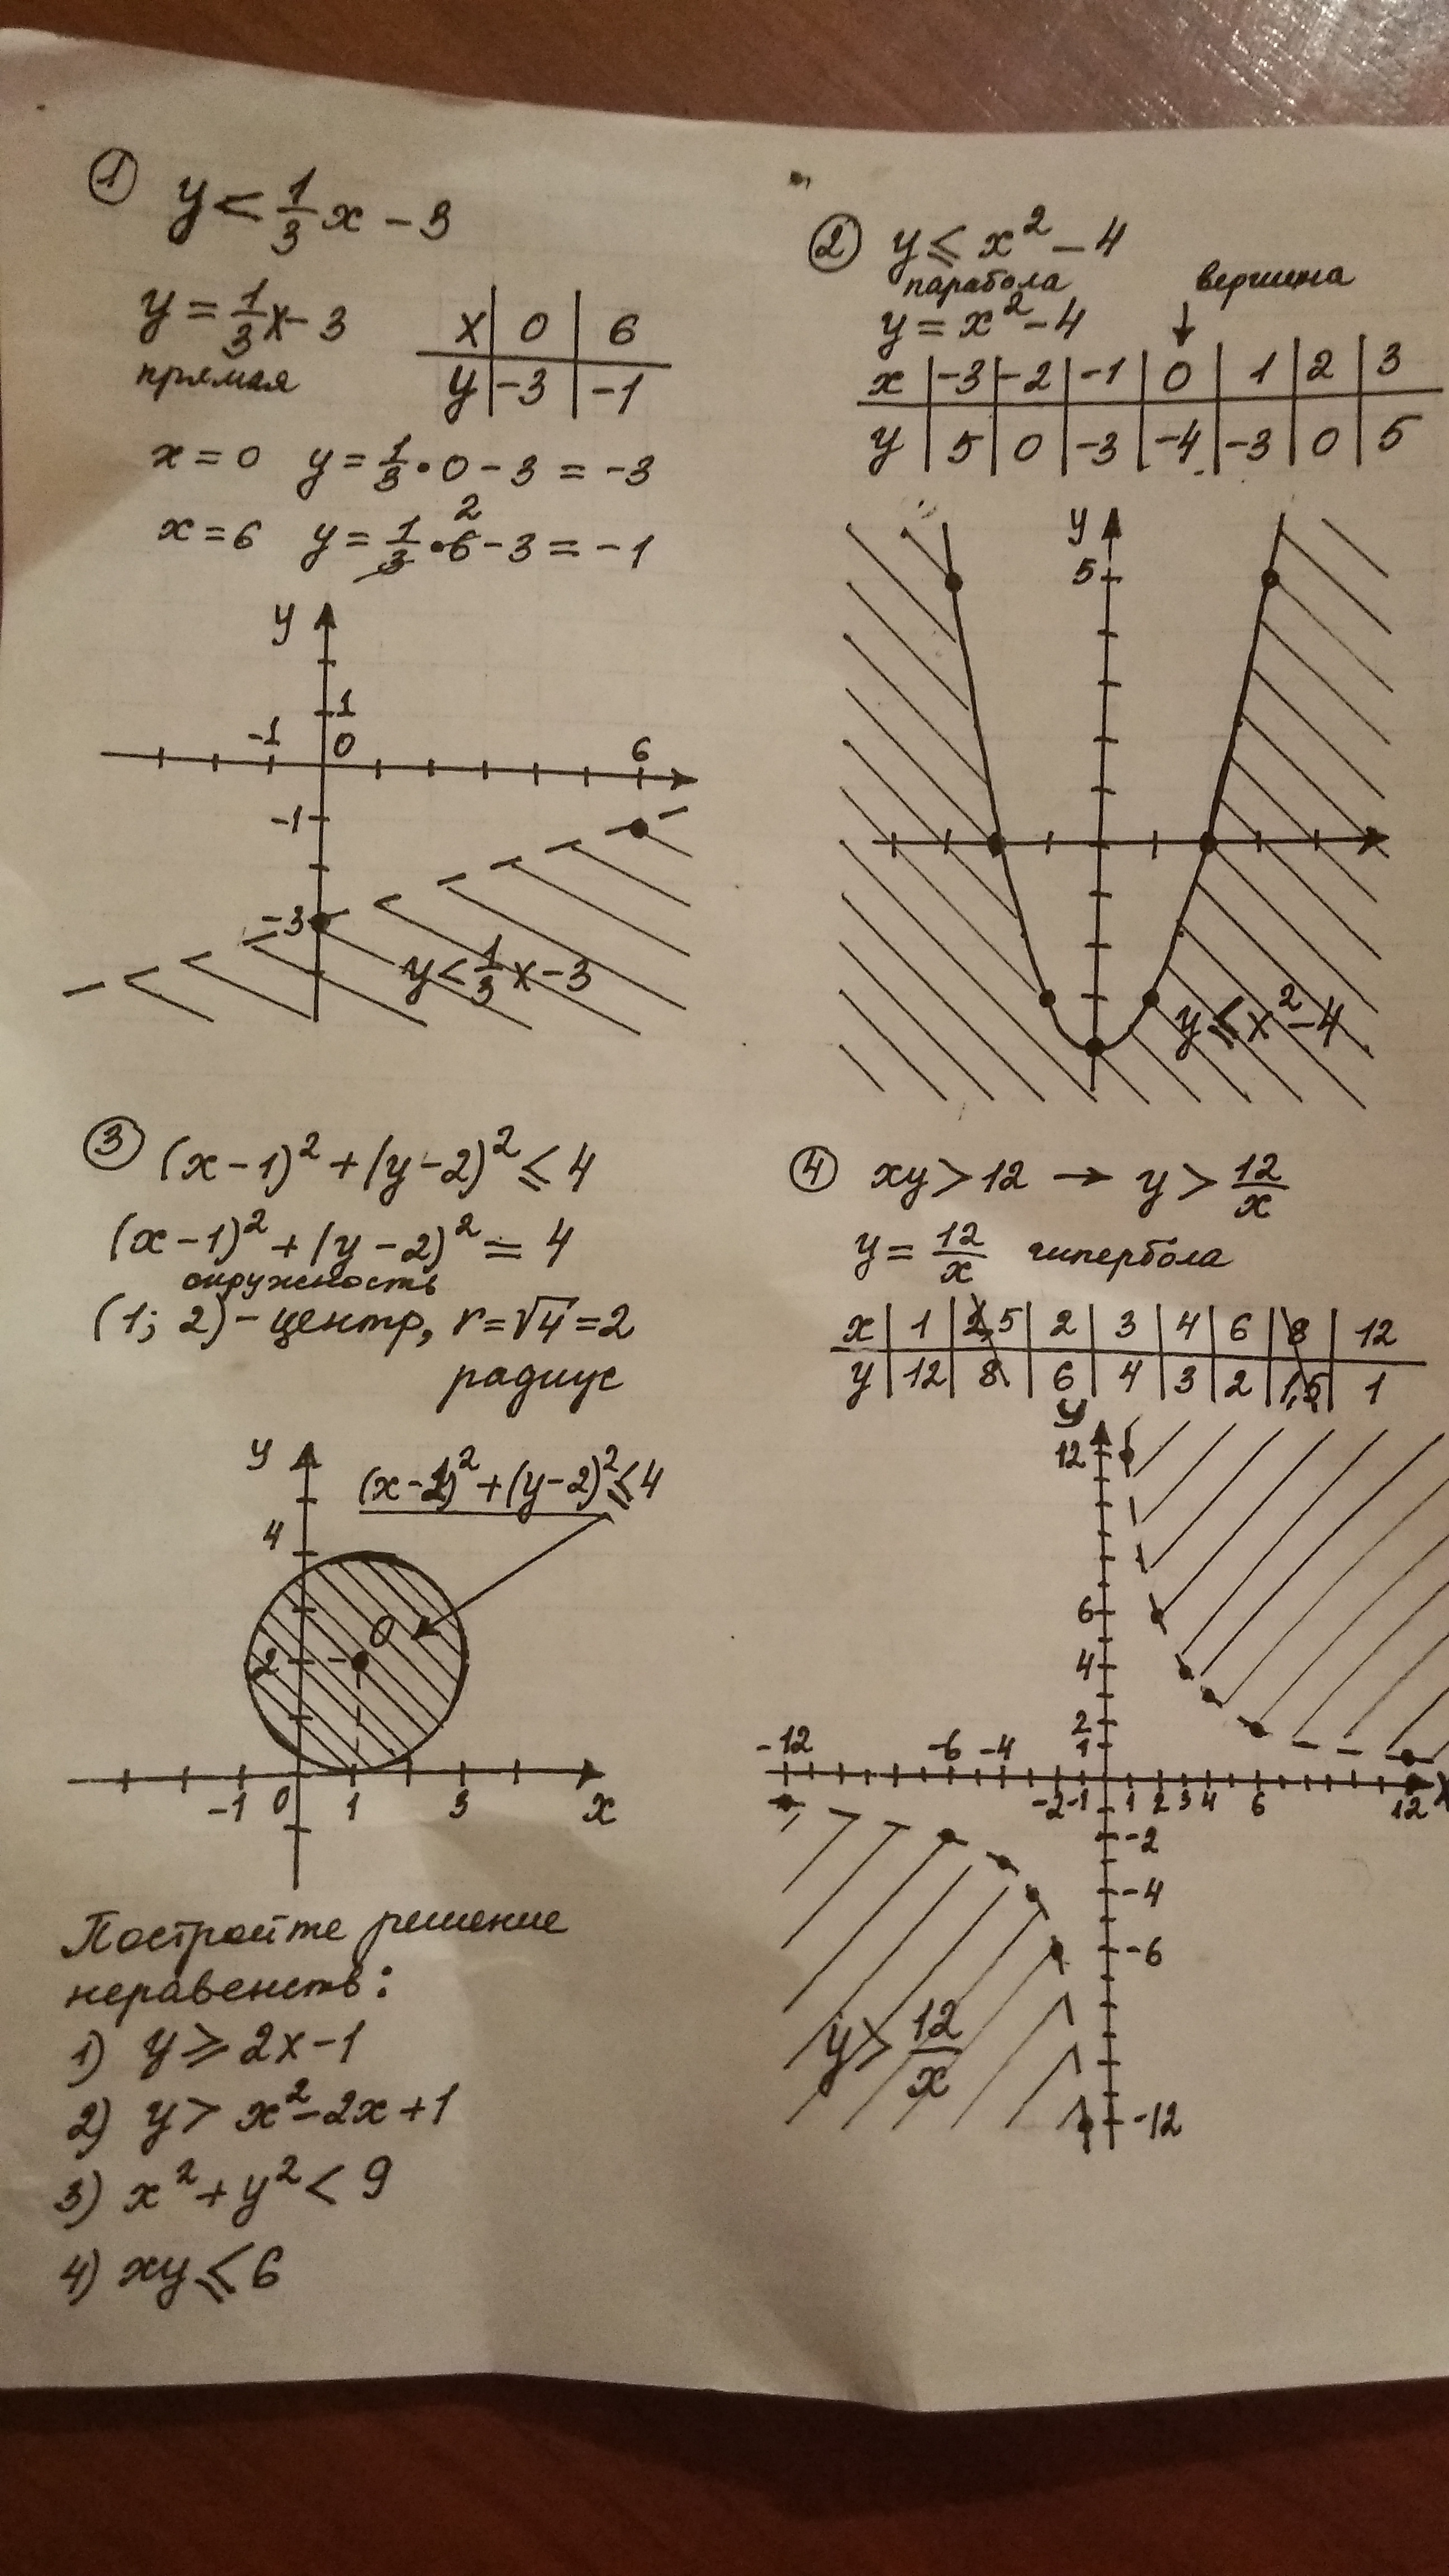 ① y < 1/3 x - 3
y = 1/3 x - 3
прямая
x | 0 | 6
y | -3 | -1
x = 0 y = 1/3 · 0 - 3 = -3
x = 6 y = 1/3 · 6 - 3 = -1
2
y
1
-1 0 6
-1
-3
y < 1/3 x - 3
② y ⩽ x² - 4
парабола вершина
y = x² - 4
x | -3 | -2 | -1 | 0 | 1 | 2 | 3
y | 5 | 0 | -3 | -4 | -3 | 0 | 5
y
5
y ⩽ x² - 4
③ (x - 1)² + (y - 2)² ⩽ 4
(x - 1)² + (y - 2)² = 4
окружность
(1; 2) - центр, r = √4 = 2
радиус
y (x - 1)² + (y - 2)² ⩽ 4
4
O
2
-1 0 1 3 x
④ xy > 12 → y > 12/x
y = 12/x гипербола
x | 1 | 1,5 | 2 | 3 | 4 | 6 | 8 | 12
y | 12 | 8 | 6 | 4 | 3 | 2 | 1,5 | 1
y
12
6
4
2
1
-12 -6 -4 -2 -1 1 2 3 4 6 12 x
-2
-4
-6
y > 12/x
-12
Постройте решение
неравенств:
1) y ⩾ 2x - 1
2) y > x² - 2x + 1
3) x² + y² < 9
4) xy ⩽ 6